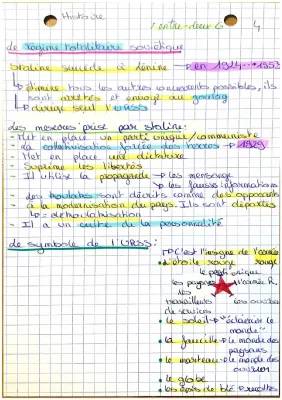 Histoire
L'entre-deux G 4
Le régime totalitaire soviétique
Staline succède à Lénine → en 1924...1953
↳ élimine tous les autres concurrents possibles, ils
sont arrêtés et envoyé au goulag
↳ dirige seul l'URSS
Les mesures prise par Staline :
- Met en place un parti unique/communiste
- La collectivisation forcée des terres → 1929
- Met en place une dictature
- Suprime les libertés
- Il utilise la propagande ↳ les mensonge
↳ les fausses informations
- Les koulaks sont décrits comme des opposants
- à la modernisation du pays. Ils sont déportés
↳ dékoulakisation
- Il a un culte de la personnalité
Le symbole de l'URSS :
→ C'est l'insigne de l'armée
• l'étoile rouge rouge
le parti unique
les paysans l'armée R.
les
travailleurs les ouvriers
de services
• le soleil → "éclaircir le
monde"
• la faucille → le monde des
paysans
• le marteau → le monde des
ouvriers
• le globe
• les épis de blé → récoltes